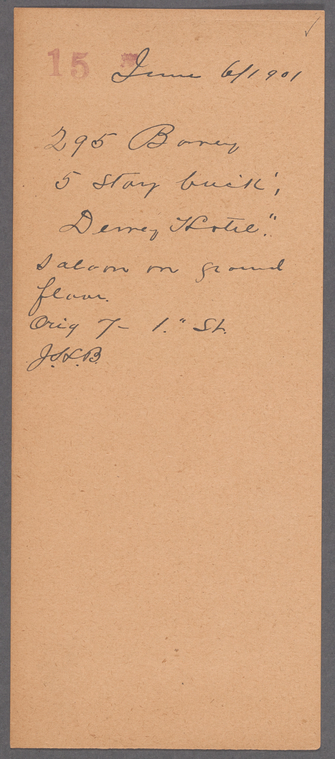 15
June 6/1901
295 Bowery
5 story brick,
"Dewey Hotel".
Saloon on ground
floor.
Orig 7- 1." St.
J.S.B.